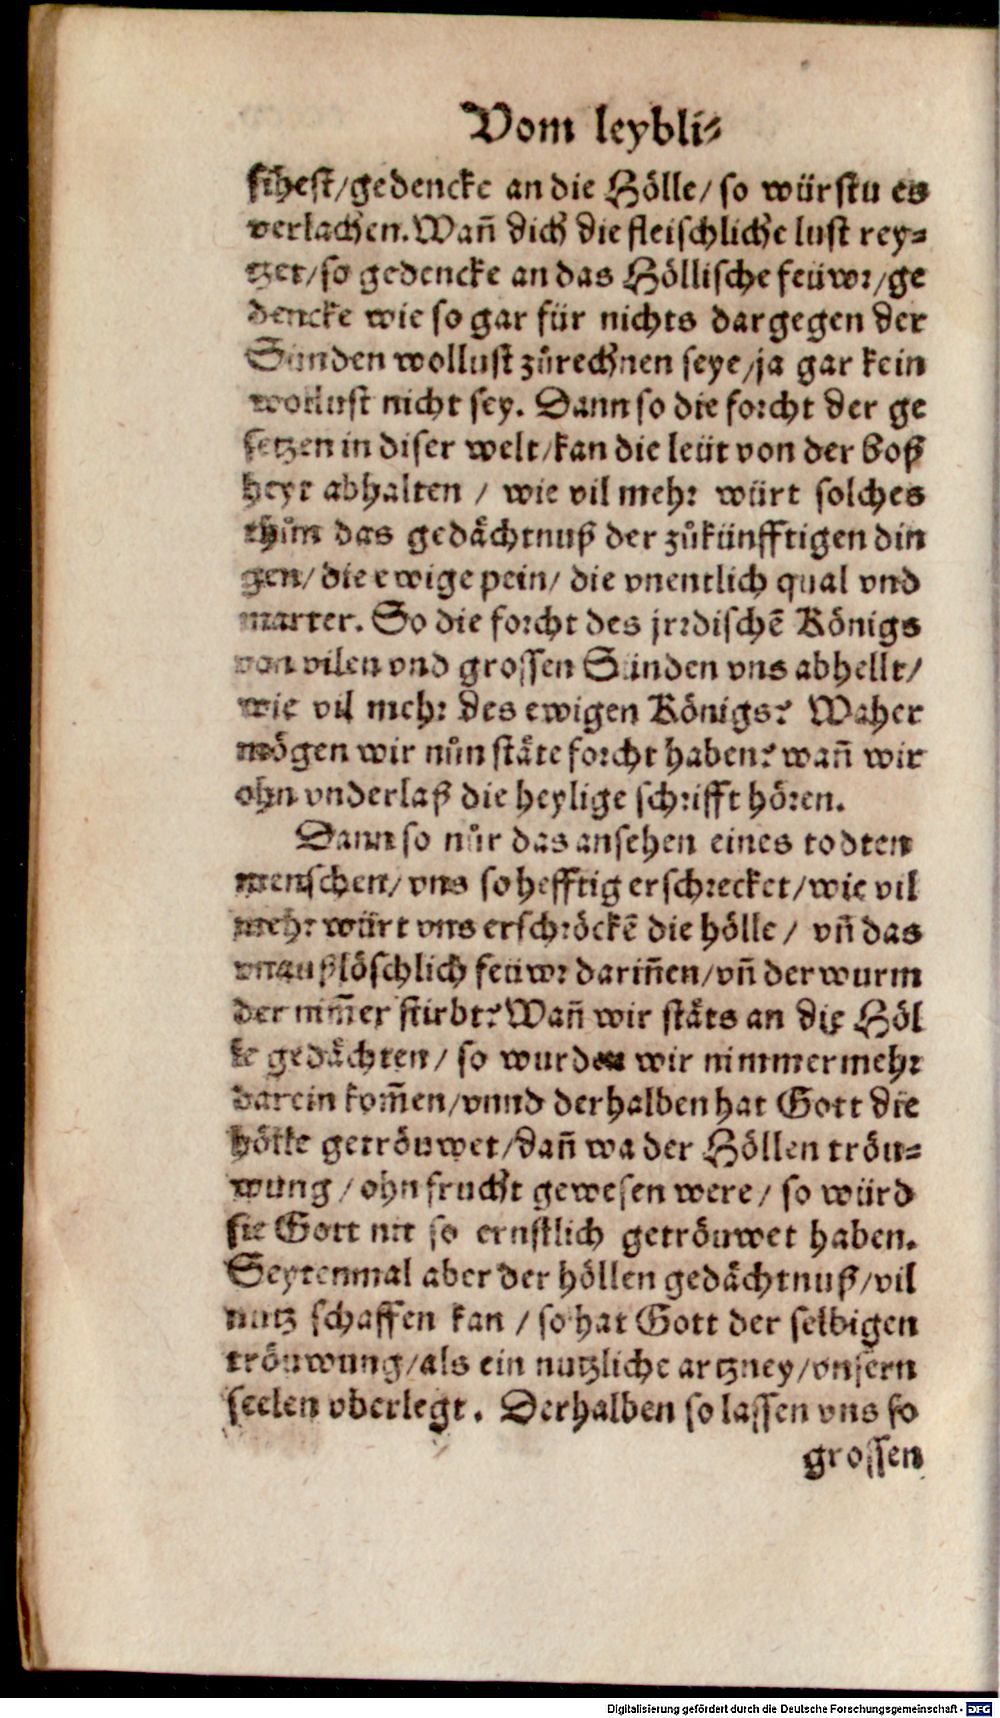 Vom leybli⸗
sihest/gedencke an die Hölle/ so würstu es
verlachen. Wañ dich die fleischliche lust rey⸗
tzet/so gedencke an das Höllische feüwr/ge
dencke wie so gar für nichts dargegen der
Sünden wollust zůrechnen seye/ja gar kein
wollust nicht sey. Dann so die forcht der ge
setzen in diser welt/kan die leüt von der Boß
heyt abhalten / wie vil mehr würt solches
thůn das gedächtnuß der zůkünfftigen din
gen/ die ewige pein/ die vnentlich qual vnd
marter. So die forcht des jrrdischẽ Königs
von vilen vnd grossen Sünden vns abhellt/
wie vil mehr des ewigen Königs? Waher
mögen wir nůn stäte forcht haben? wañ wir
ohn vnderlaß die heylige schrifft hören.
Dann so nůr das ansehen eines todten
menschen/ vns so hefftig erschrecket/wie vil
mehr würt vns erschröckẽ die hölle / vñ das
vnaußlöschlich feüwr dariñen/vñ der wurm
der nim̃er stirbt? Wañ wir stäts an die Höl
le gedächten/ so wurden wir nimmermehr
darein kom̃en/vnnd derhalben hat Gott die
hölle getröuwet/dañ wa der Höllen tröu⸗
wung / ohn frucht gewesen were/ so würd
sie Gott nit so ernstlich getröuwet haben.
Seytenmal aber der höllen gedächtnuß/vil
nutz schaffen kan / so hat Gott der selbigen
tröuwung/als ein nutzliche artzney/vnsern
seelen vberlegt. Derhalben so lassen vns so
grossen
Digitalisierung gefördert durch die Deutsche Forschungsgemeinschaft - DFG